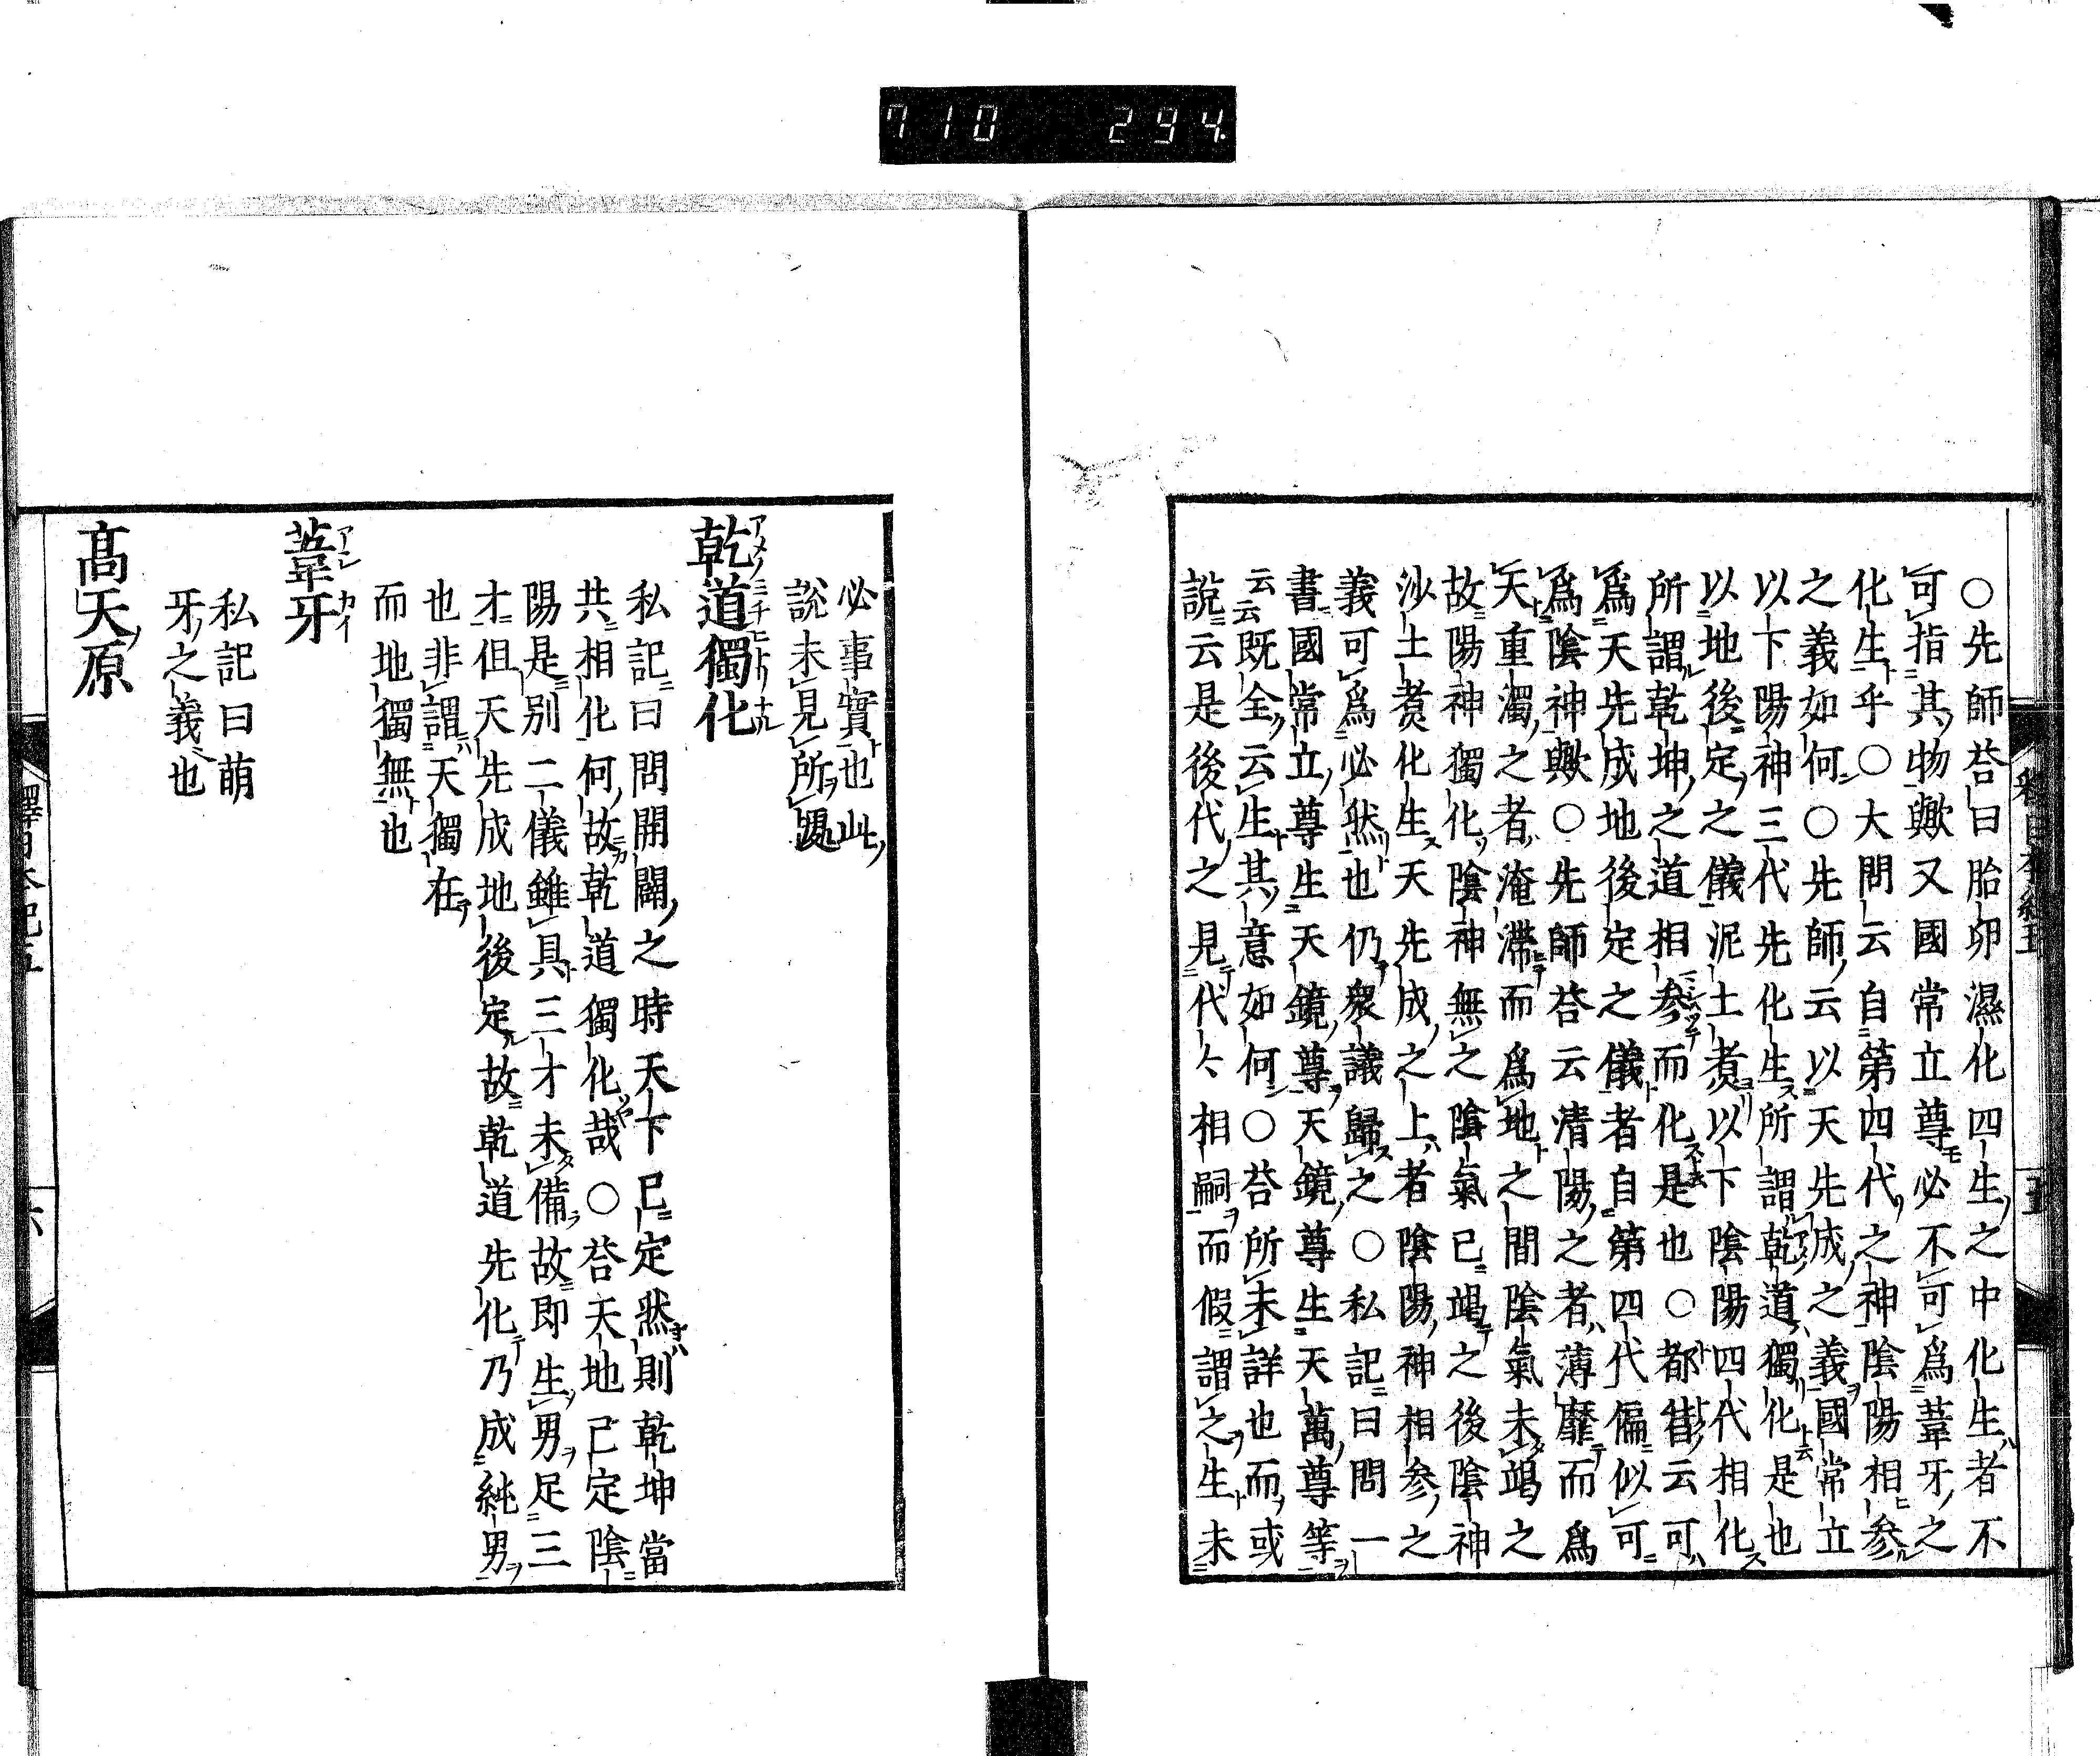 710 294
○先師荅曰胎卵濕化四生之中化生者不
可指其物歟又國常立尊必不可爲葦牙之
化生乎○大問云自第四代之神陰陽相参
之義如何○先師云以天先成之義國常立
以下陽神三代先化生所謂乾道獨化是也
以地後定之儀泥土煑以下陰陽四代相化
所謂乾坤之道相参而化是也○都督云可
爲天先成地後定之儀者自第四代偏似可
爲陰神歟○先師荅云清陽之者薄靡而爲
天重濁之者淹滯而爲地之間陰氣未竭之
故陽神獨化陰神無之陰氣已竭之後陰神
沙土煑化生天先成之上者陰陽神相参之
義可爲必然也仍衆議歸之○私記曰問一
書國常立尊生天鏡尊天鏡尊生天萬尊等
云云既全云生其意如何○荅所未詳也而或
說云是後代之見代々相嗣而假謂之生未
必事實也此
說未見所
乾道獨化
アメノミチヒトリナル
私記曰問開闢之時天下已定然則乾坤當
共相化何故乾道獨化哉○荅天地已定陰
陽是别二儀雖具三才未備故即生男足三
才但天先成地後定故乾道先化乃成純男
也非謂天獨在
而地獨無也
葦牙
アシカイ
私記曰萌
牙之義也
髙天原